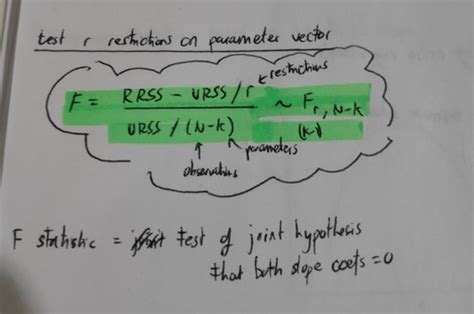 test r restrictions on parameter vector
restrictions
F = RRSS - URSS / r ~ F r, N-k
URSS / (N-k)
parameters
observations
F statistic = test of joint hypothesis
that both slope coefs = 0